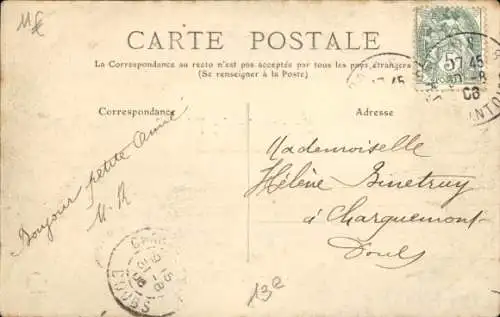 CARTE POSTALE
La Correspondance au recto n'est pas acceptée par tous les pays étrangers
(Se renseigner à la Poste)
Correspondance
Adresse
Bonjour petite Amie
M. R
Mademoiselle
Hélène Binetruy
à Charquemont
Doubs
13e
5
17 45
DOUBS